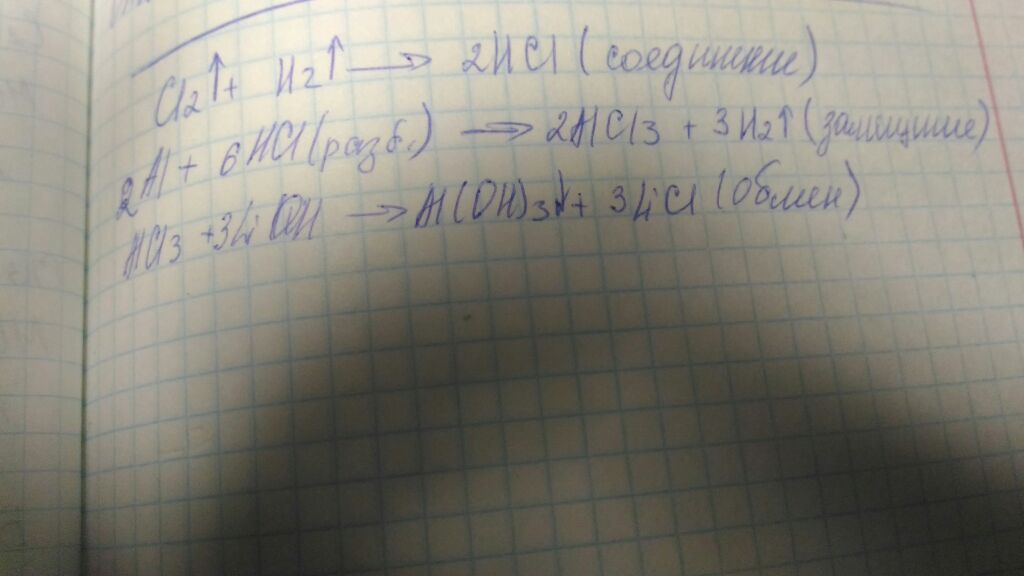 Cl2↑ + H2↑ → 2HCl (соединение)
2Al + 6HCl (разб.) → 2AlCl3 + 3H2↑ (замещение)
AlCl3 + 3LiOH → Al(OH)3↓ + 3LiCl (Обмен)